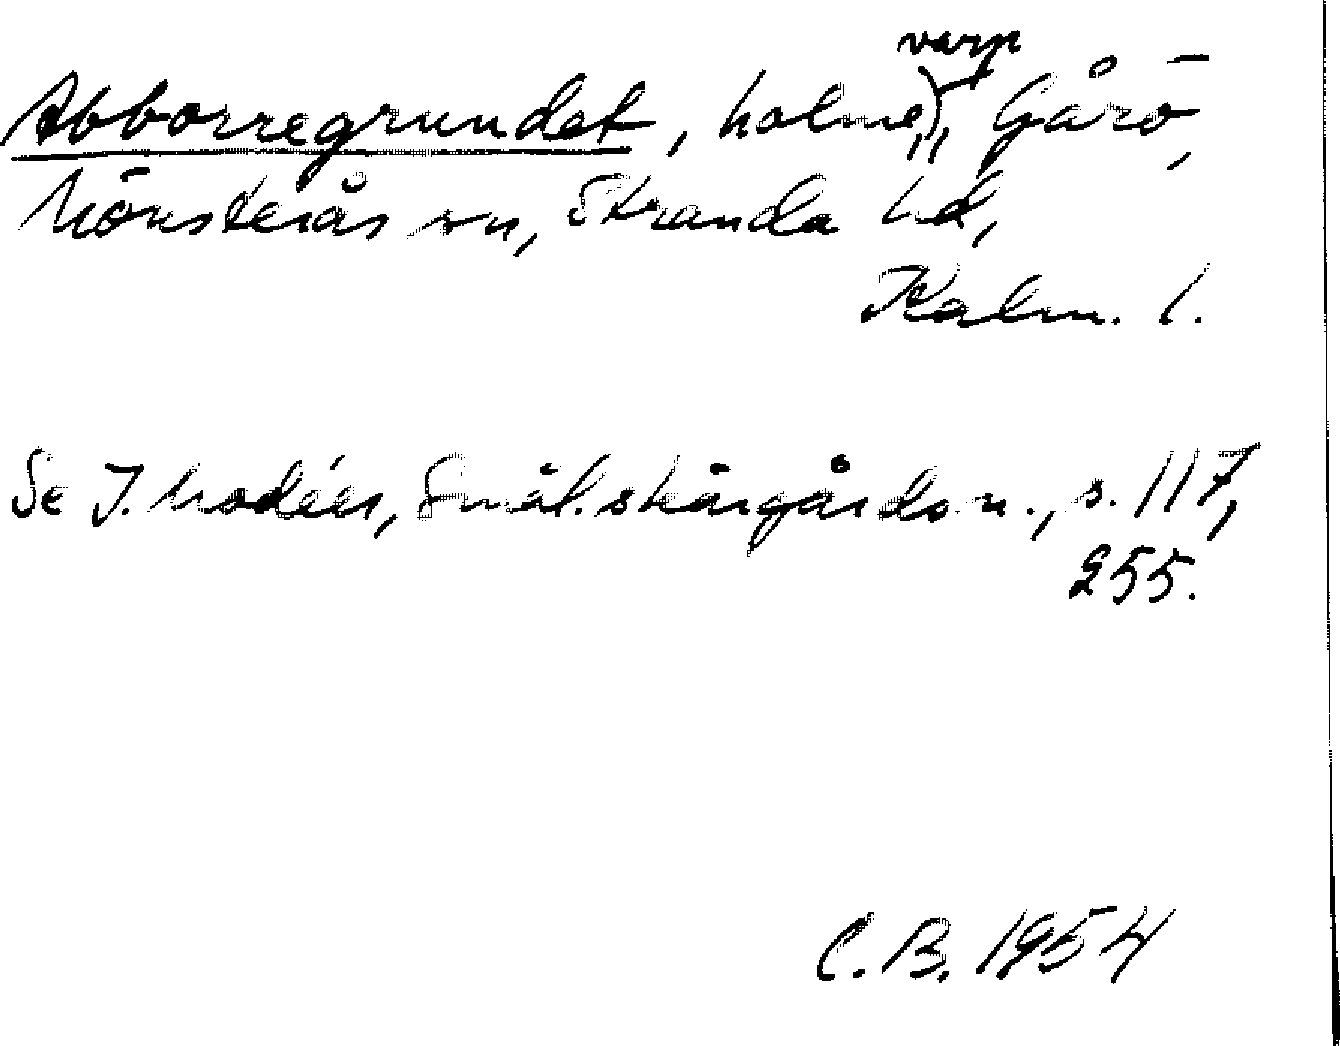 varp
Abborregrundet, holme, Gårö,
Mönsterås sn, Stranda hd,
Kalm. l.
Se I. Modéer, Smål. skärgårdsn., s. 117,
255.
C. B. 1954